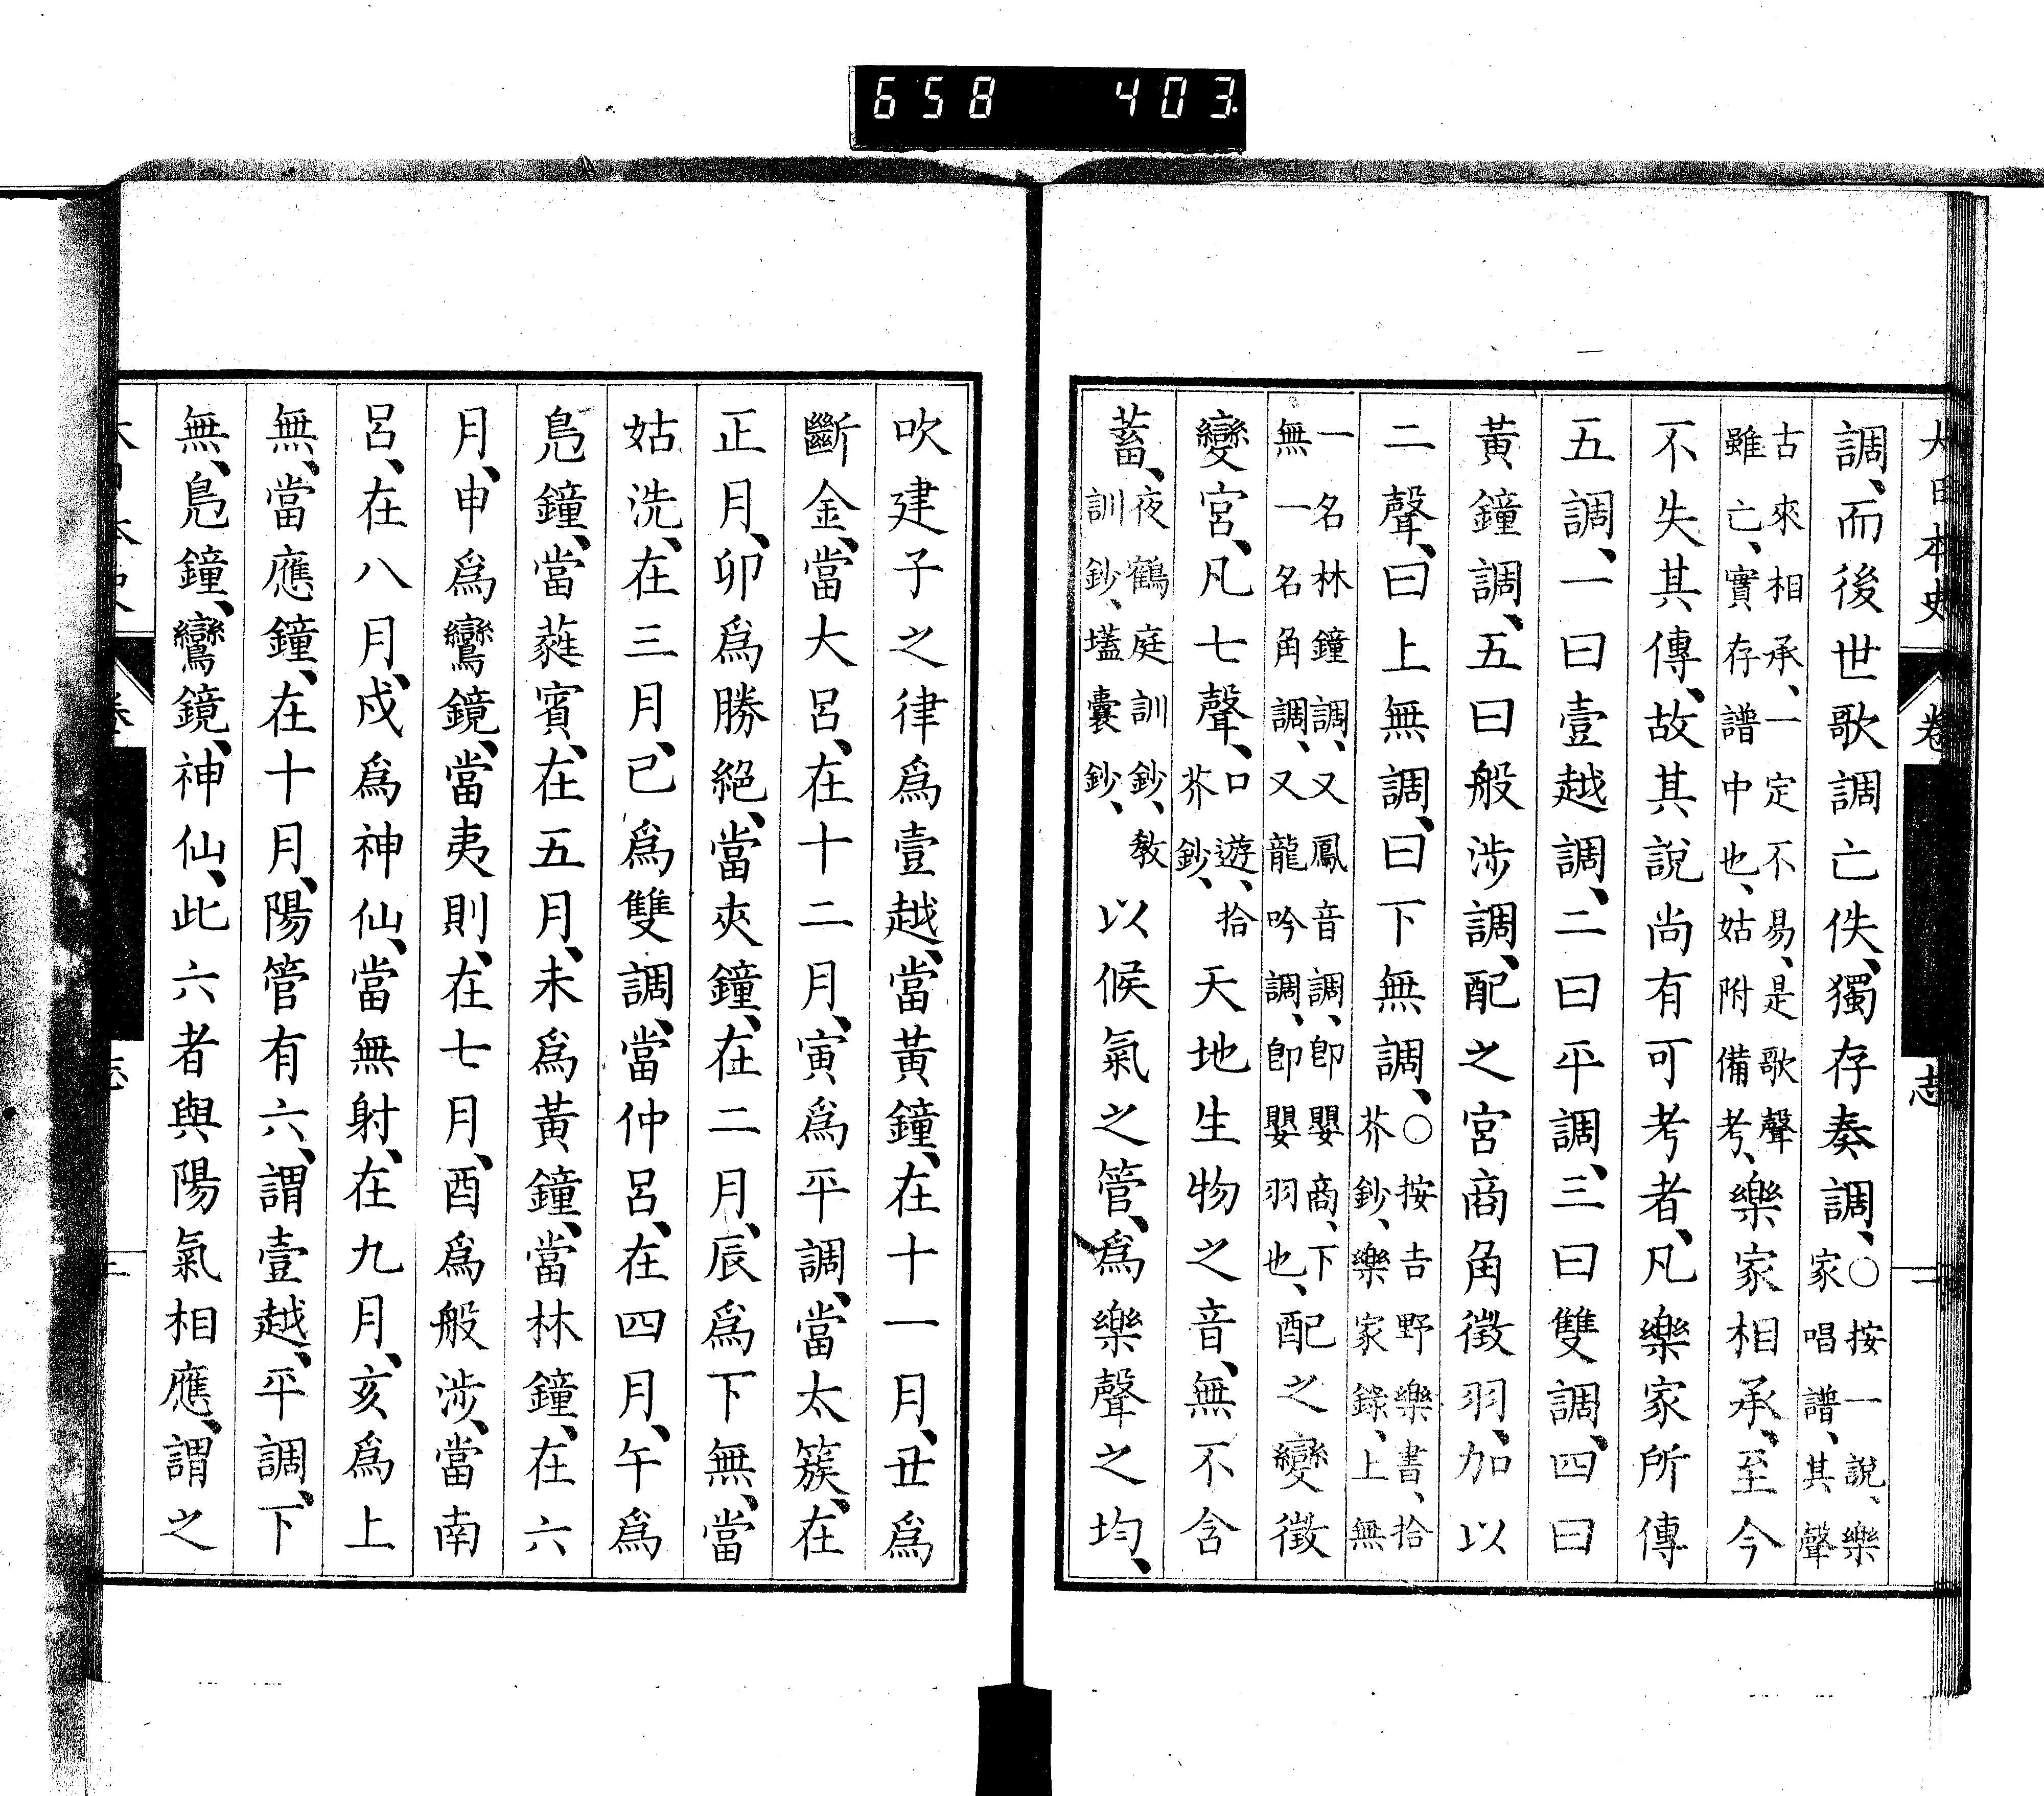 658 403
大日本史 卷 志 二
調、而後世歌調亡佚、獨存奏調、○按一說、樂家唱譜、其聲
古來相承、一定不易、是歌聲雖亡、實存譜中也、姑附備考、樂家相承、至今
不失其傳、故其說尚有可考者、凡樂家所傳
五調、一曰壹越調、二曰平調、三曰雙調、四曰
黃鐘調、五曰般涉調、配之宮商角徵羽、加以
二聲、曰上無調、曰下無調、○按吉野樂書、拾芥鈔、樂家錄、上無
一名林鐘調、又鳳音調、卽嬰商、下無一名角調、又龍吟調、卽嬰羽也、配之變徵
變宮、凡七聲、口遊、拾芥鈔、天地生物之音、無不含
蓄、夜鶴庭訓鈔、教訓鈔、壒囊鈔、以候氣之管、爲樂聲之均、
吹建子之律爲壹越、當黃鐘、在十一月、丑爲
斷金、當大呂、在十二月、寅爲平調、當太簇、在
正月、卯爲勝絕、當夾鐘、在二月、辰爲下無、當
姑洗、在三月、巳爲雙調、當仲呂、在四月、午爲
鳧鐘、當蕤賓、在五月、未爲黃鐘、當林鐘、在六
月、申爲鸞鏡、當夷則、在七月、酉爲般涉、當南
呂、在八月、戌爲神仙、當無射、在九月、亥爲上
無、當應鐘、在十月、陽管有六、謂壹越、平調、下
無、鳧鐘、鸞鏡、神仙、此六者與陽氣相應、謂之